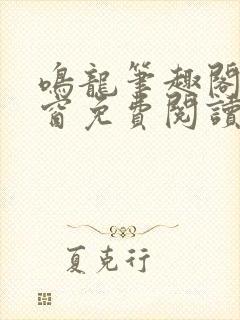 鳴龍筆趣閣
窗免費閱讀
夏克行